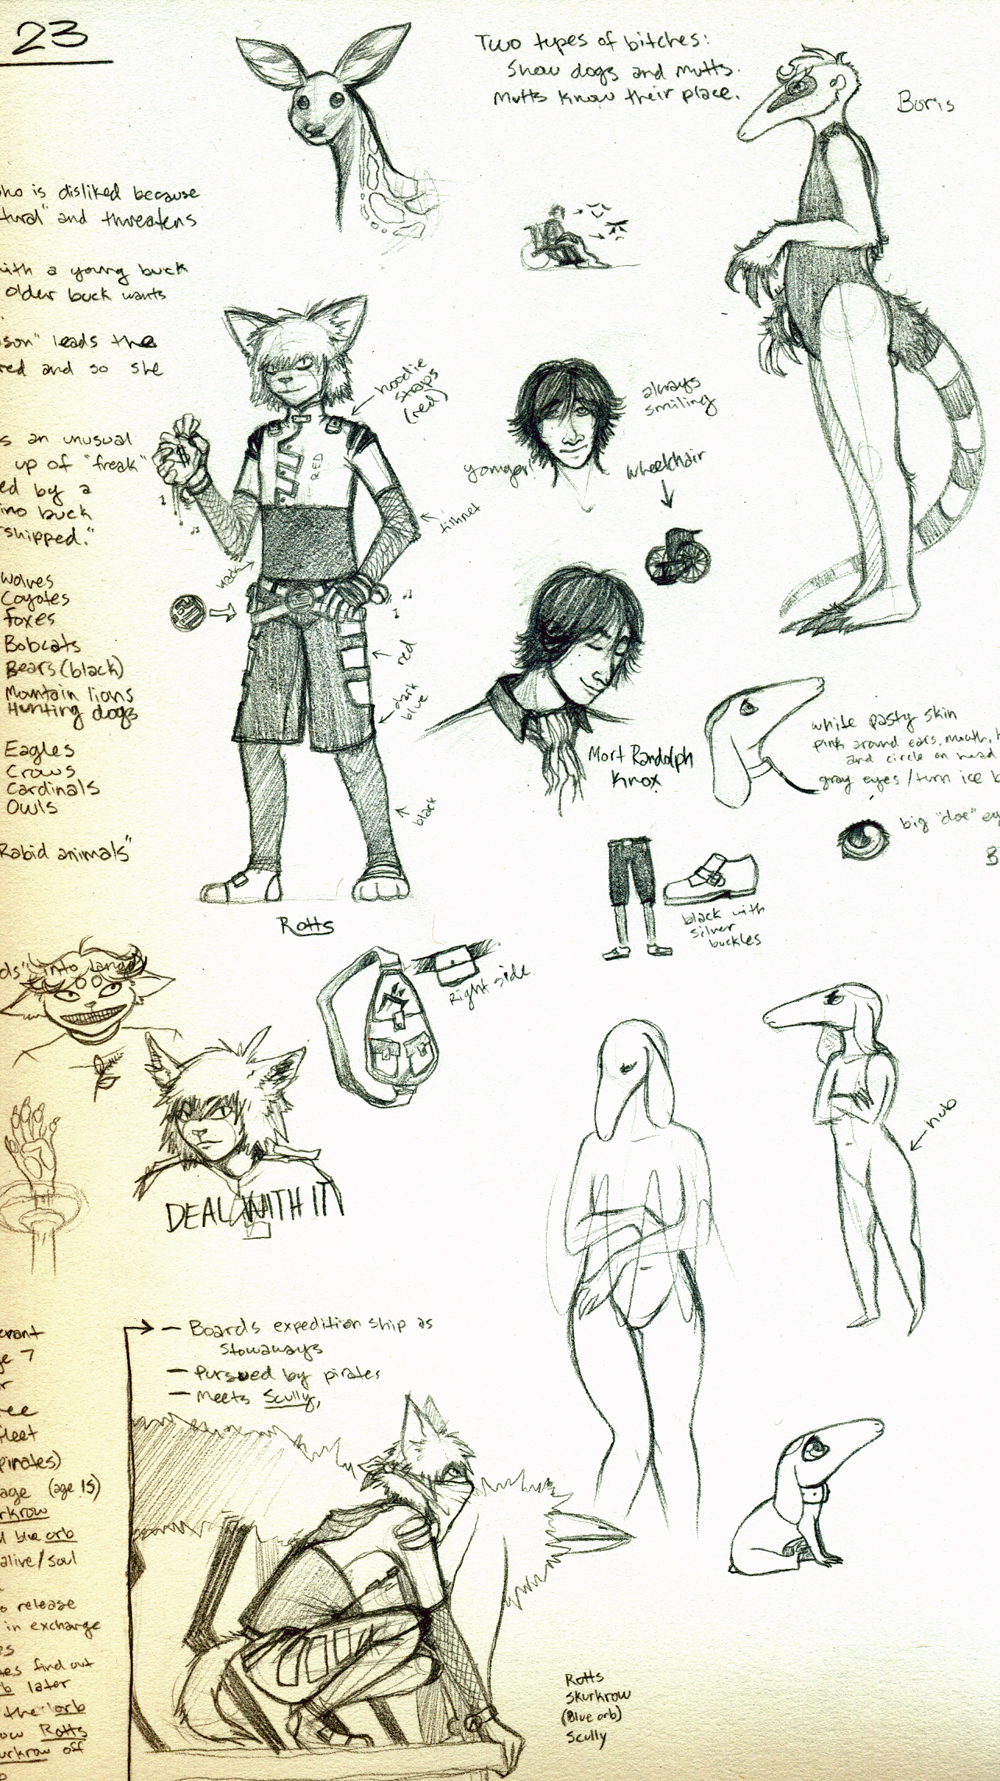 23
Two types of bitches:
Show dogs and mutts.
Mutts know their place.
Boris
who is disliked because
and threatens
with a young buck
older buck wants
leads the
and so she
an unusual
up of "freak"
by a
buck
wolves
Coyotes
foxes
Bobcats
Bears (black)
Mountain lions
Hunting dogs
Eagles
Crows
Cardinals
Owls
Rabid animals"
hoodie
straps
(red)
RED
$
fishnet
red
dark
blue
black
Rotts
always
smiling
younger!
wheelchair
Mort Randolph
Knox
white pasty skin
pink around ears, mouth,
and circle on head
gray eyes/turn ice
big "doe"
black with
silver
buckles
into
Right side
DEAL WITH IT
nub
– Boards expedition ship as
stowaways
– Pursued by pirates
– Meets Scully,
7
fleet
pirates)
(age 15)
blue orb
alive/soul
release
in exchange
find out
later
the orb
Rotts
off
Rotts
Skurkrow
(Blue orb)
Scully